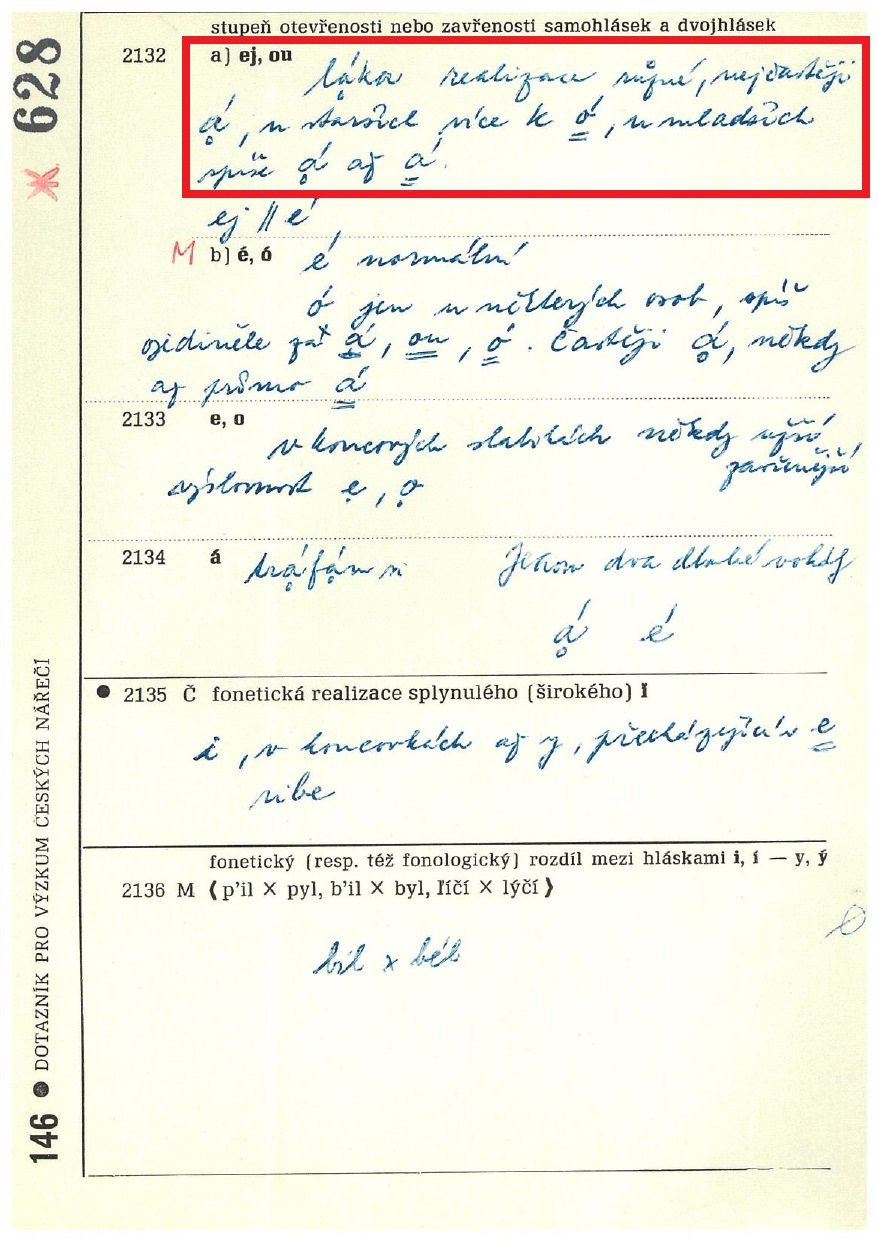 stupeň otevřenosti nebo zavřenosti samohlásek a dvojhlásek
2132 a) ej, ou
lḁ́ka realizace různé, nejčastěji
ḁ́, u starších více k ó̳, u mladších
spíše ḁ́ až á̳.
ej || é
M b) é, ó é normální
ó jen u některých osob, spíš
ojediněle za á̳, ou, ó̳. Častěji ḁ́, někdy
až přímo á̳
2133 e, o
v koncových slabikách někdy užší
zavřenější
výslovnost ẹ, ọ
2134 á trḁ́fḁ́m si Jenom dva dlouhé vokály
ḁ́ é
● 2135 Č fonetická realizace splynulého (širokého) ī
i, v koncovkách až y, přecházející v e̳
ribe
fonetický (resp. též fonologický) rozdíl mezi hláskami i, í — y, ý
2136 M ⟨p'il × pyl, b'il × byl, ľíčí × lýčí⟩
bil × bél
628
146 ● DOTAZNÍK PRO VÝZKUM ČESKÝCH NÁŘEČÍ